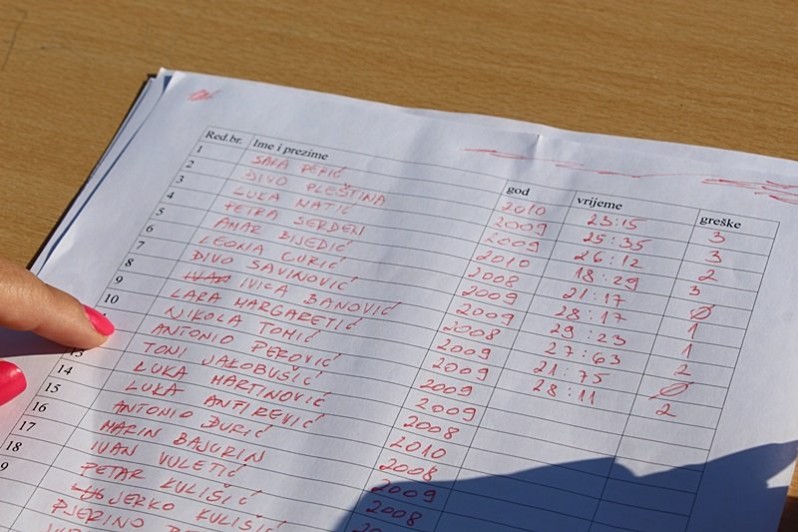 Red.br. Ime i prezime god vrijeme greške
1 SARA PERIĆ 2010 23:15 3
2 ĐIVO PLEŠTINA 2009 25:35 3
3 LUKA MATIĆ 2009 26:12 2
4 PETRA 2010 18:29 3
5 AMAR BIJEDIĆ 2008 21:17 Ø
6 LEONA CURIĆ 2009 28:17 1
7 ĐIVO SAVINOVIĆ 2009 29:23 1
8 IVICA BANOVIĆ 2008 27:63 2
9 LARA MARGARETIĆ 2009 21:75 Ø
10 NIKOLA TOMIĆ 2009 28:11 2
ANTONIO PEROVIĆ 2009
TONI JAKOBUŠIĆ 2008
13 LUKA MARTINOVIĆ 2010
14 LUKA ANTIREVIĆ 2008
15 ANTONIO ĐURIĆ 2009
16 MARIN BAJURIN 2008
17 IVAN VULETIĆ
18 PETAR KULIŠIĆ
9 JERKO KULIŠIĆ
PJERINO